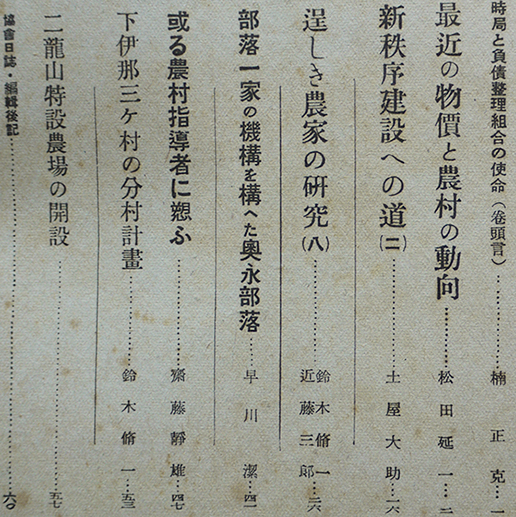 時局と負債整理組合の使命(卷頭言)……楠正克…一
最近の物價と農村の動向………松田延一…二
新秩序建設への道(二)………土屋大助…一六
逞しき農家の研究(八)………鈴木脩一 近藤三郎…二六
部落一家の機構を構へた奧永部落……早川潔…四一
或る農村指導者に愬ふ………齋藤靜雄…四七
下伊那三ケ村の分村計畫………鈴木脩一…五三
二龍山特設農場の開設………五七
協會日誌・編輯後記………六〇